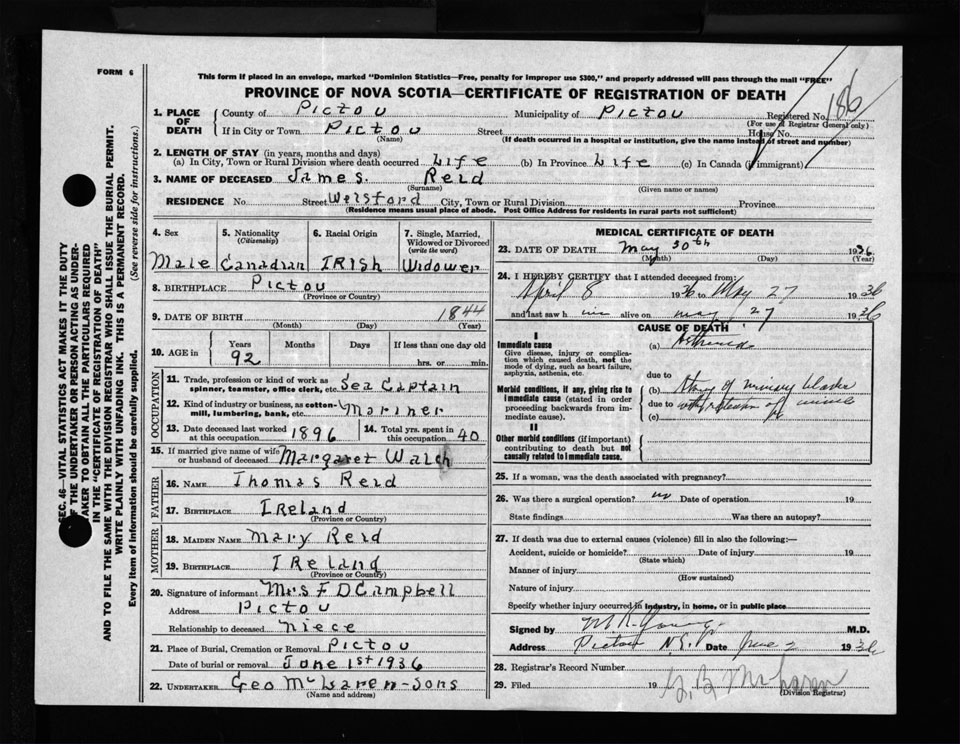 FORM 6
This form if placed in an envelope, marked "Dominion Statistics—Free, penalty for improper use $300," and properly addressed will pass through the mail "FREE"
PROVINCE OF NOVA SCOTIA—CERTIFICATE OF REGISTRATION OF DEATH
186
1. PLACE OF DEATH
County of Pictou Municipality of Pictou Registered No.
(For use of Registrar General only)
If in City or Town Pictou Street House No.
(Name) (If death occurred in a hospital or institution, give the name instead of street and number)
2. LENGTH OF STAY (in years, months and days)
(a) In City, Town or Rural Division where death occurred Life (b) In Province Life (c) In Canada (if immigrant)
3. NAME OF DECEASED James. Reid
(Surname) (Given name or names)
RESIDENCE No. Street Welsford City, Town or Rural Division Province
(Residence means usual place of abode. Post Office Address for residents in rural parts not sufficient)
4. Sex 5. Nationality (Citizenship) 6. Racial Origin 7. Single, Married, Widowed or Divorced (write the word)
Male Canadian IRish Widower
8. BIRTHPLACE Pictou
(Province or Country)
9. DATE OF BIRTH 1844
(Month) (Day) (Year)
10. AGE in Years Months Days If less than one day old
92 hrs. or min.
OCCUPATION
11. Trade, profession or kind of work as spinner, teamster, office clerk, etc. Sea Captain
12. Kind of industry or business, as cotton-mill, lumbering, bank, etc. Mariner
13. Date deceased last worked at this occupation 1896 14. Total yrs. spent in this occupation 40
15. If married give name of wife or husband of deceased Margaret Walch
FATHER
16. NAME Thomas Reid
17. BIRTHPLACE IReland
(Province or Country)
MOTHER
18. MAIDEN NAME Mary Reid
19. BIRTHPLACE IReland
(Province or Country)
20. Signature of informant Mrs F D Campbell
Address Pictou
Relationship to deceased niece
21. Place of Burial, Cremation or Removal Pictou
Date of burial or removal June 1st 1936
22. UNDERTAKER Geo McLaren-Sons
(Name and address)
MEDICAL CERTIFICATE OF DEATH
23. DATE OF DEATH May 30th 1936
(Month) (Day) (Year)
24. I HEREBY CERTIFY that I attended deceased from:
April 8 1936 to May 27 1936
and last saw him alive on May 27 1936
CAUSE OF DEATH
I
Immediate cause (a)
Give disease, injury or complication which caused death, not the mode of dying, such as heart failure, asphyxia, asthenia, etc.
due to
Morbid conditions, if any, giving rise to immediate cause (stated in order proceeding backwards from immediate cause).
(b) of urinary bladder
due to with retention of urine
(c)
II
Other morbid conditions (if important) contributing to death but not causally related to immediate cause.
25. If a woman, was the death associated with pregnancy?
26. Was there a surgical operation? no Date of operation 19
State findings Was there an autopsy?
27. If death was due to external causes (violence) fill in also the following:—
Accident, suicide or homicide? Date of injury 19
(State which)
Manner of injury
(How sustained)
Nature of injury
Specify whether injury occurred in industry, in home, or in public place
Signed by Young M.D.
Address Pictou N.S. Date June 2 1936
28. Registrar's Record Number
29. Filed 19
(Division Registrar)
SEC. 46—VITAL STATISTICS ACT MAKES IT THE DUTY
OF THE UNDERTAKER OR PERSON ACTING AS UNDER-
TAKER TO OBTAIN ALL THE PARTICULARS REQUIRED
IN THE "CERTIFICATE OF REGISTRATION OF DEATH"
AND TO FILE THE SAME WITH THE DIVISION REGISTRAR WHO SHALL ISSUE THE BURIAL PERMIT.
WRITE PLAINLY WITH UNFADING INK. THIS IS A PERMANENT RECORD.
Every item of information should be carefully supplied. (See reverse side for instructions.)